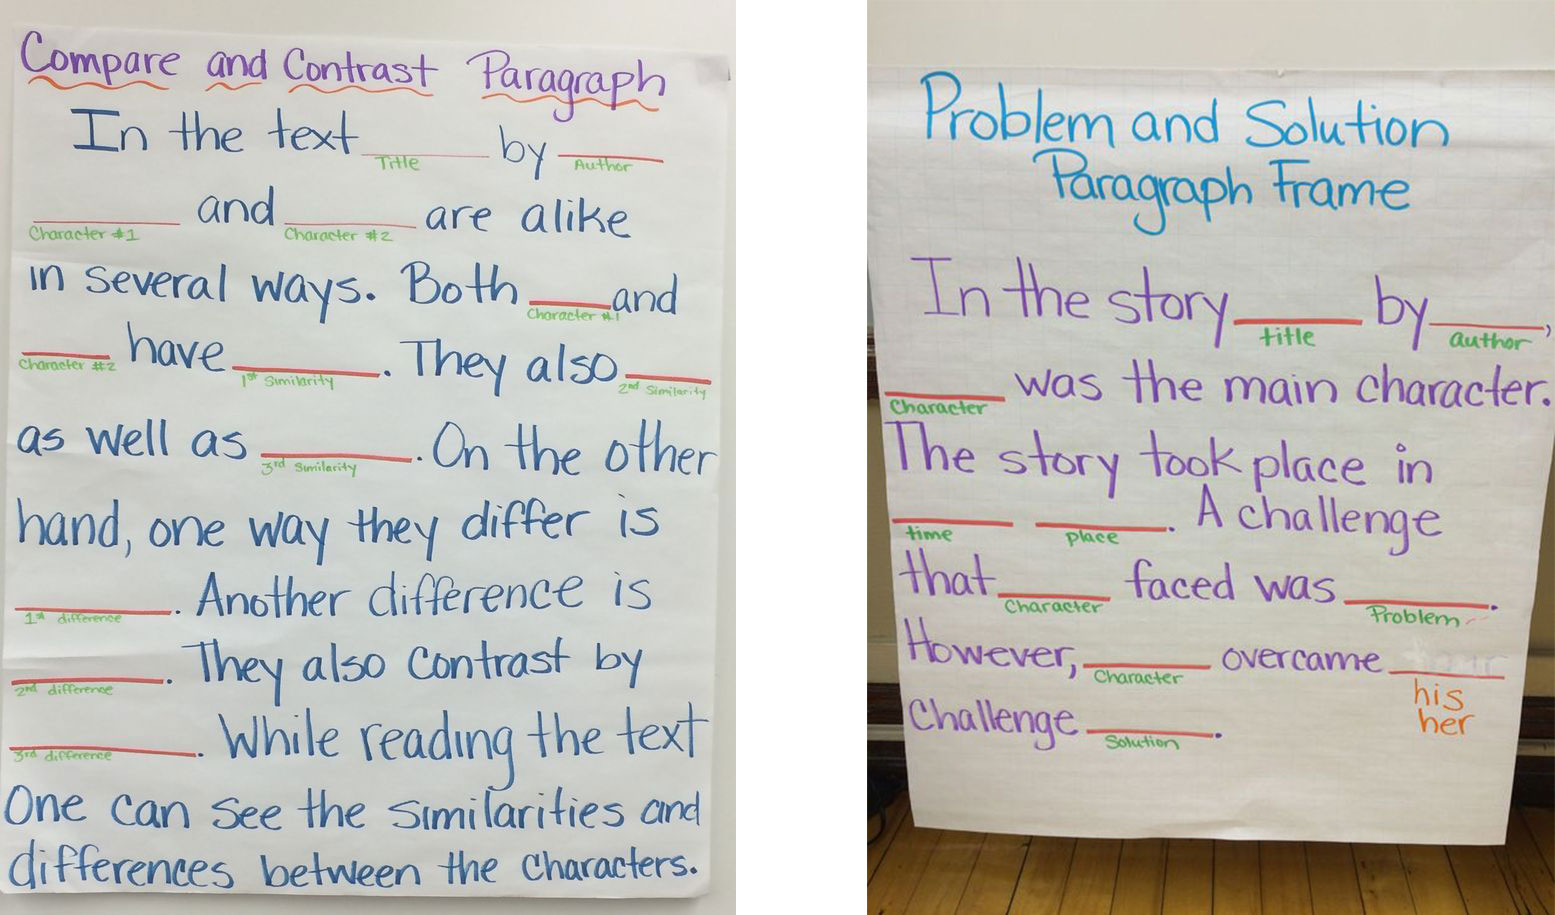 Compare and Contrast Paragraph
In the text ______ by ______
Title Author
______ and ______ are alike
Character #1 Character #2
in several ways. Both ______ and
Character #1
______ have ______. They also ______
Character #2 1st Similarity 2nd Similarity
as well as ______. On the other
3rd Similarity
hand, one way they differ is
______. Another difference is
1st difference
______. They also contrast by
2nd difference
______. While reading the text
3rd difference
One can see the similarities and
differences between the characters.
Problem and Solution
Paragraph Frame
In the story ______ by ______,
title author
______ was the main character.
Character
The story took place in
______ ______. A challenge
time place
that ______ faced was ______.
Character Problem
However, ______ overcame ______
Character his
her
Challenge ______.
Solution